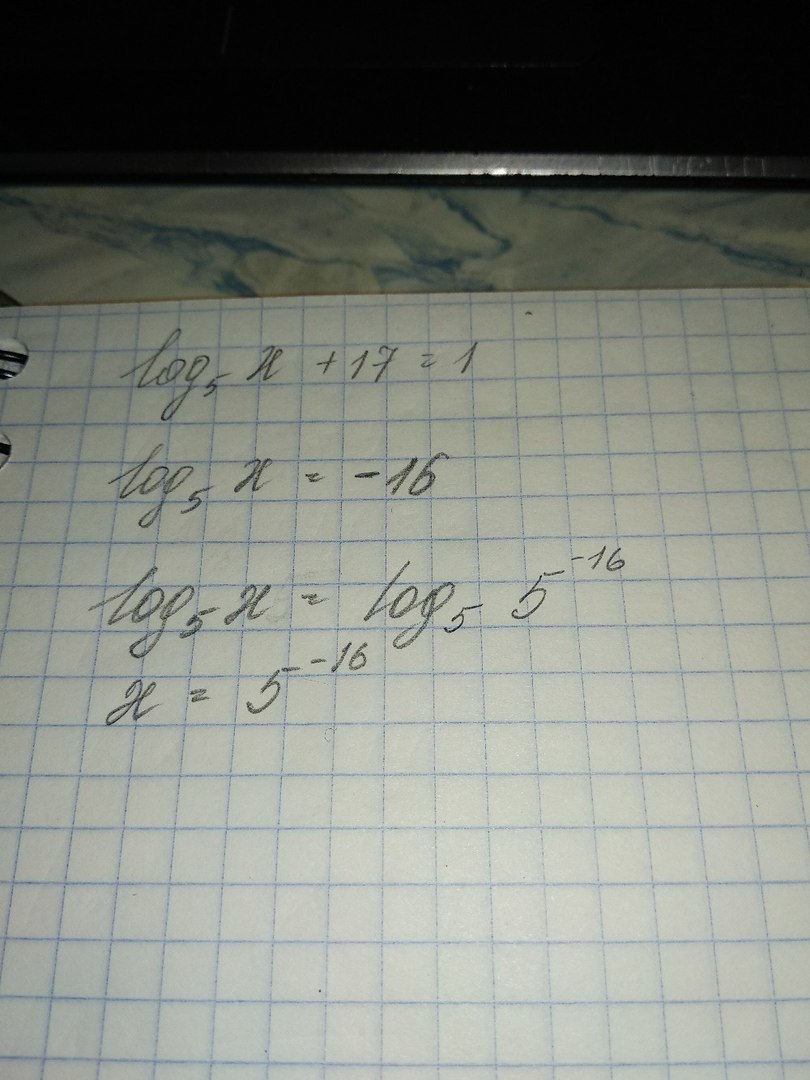 log₅ x + 17 = 1
log₅ x = -16
log₅ x = log₅ 5⁻¹⁶
x = 5⁻¹⁶